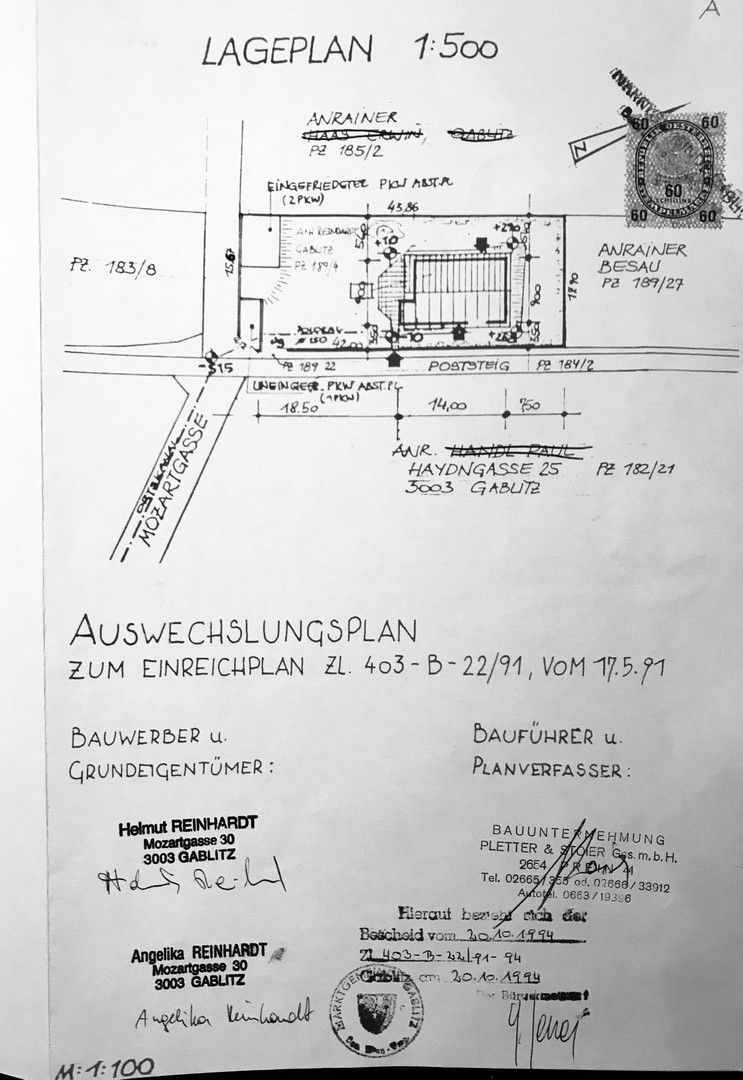 A
LAGEPLAN 1:500
ANRAINER
HAAS ERWIN, GABLITZ
PZ 185/2
N
60 60
60
SCHILLING
60 60
EINGEFRIEDETER PKW ABST.PL
(2 PKW)
43.86
PZ. 183/8
15.67
A+H REINHARDT
GABLITZ
PZ 189/4
ANRAINER
BESAU
PZ 189/27
17.90
900
900
550
42.00
-10
-3.15
PZ 189 22
POSTSTEIG PZ 184/2
UNEINGEFR. PKW ABST.PL
(1 PKW)
18.50 14.00 750
ANR. HANDL PAUL
HAYDNGASSE 25 PZ 182/21
3003 GABLITZ
ORTSKANAL
MOZARTGASSE
AUSWECHSLUNGSPLAN
ZUM EINREICHPLAN ZL. 403-B-22/91, VOM 17.5.91
BAUWERBER u.
GRUNDEIGENTÜMER:
BAUFÜHRER u.
PLANVERFASSER:
Helmut REINHARDT
Mozartgasse 30
3003 GABLITZ
BAUUNTERNEHMUNG
PLETTER & STOIER Ges.m.b.H.
2654
Tel. 02665/355 od. 02666/33912
Autotel. 0663/19396
Hierauf bezieht sich der
Bescheid vom 20.10.1994
Zl. 403-B-22/91-94
Gablitz am 20.10.1994
Der Bürgermeister
Angelika REINHARDT
Mozartgasse 30
3003 GABLITZ
Angelika Reinhardt
MARKTGEMEINDE GABLITZ
M:1:100